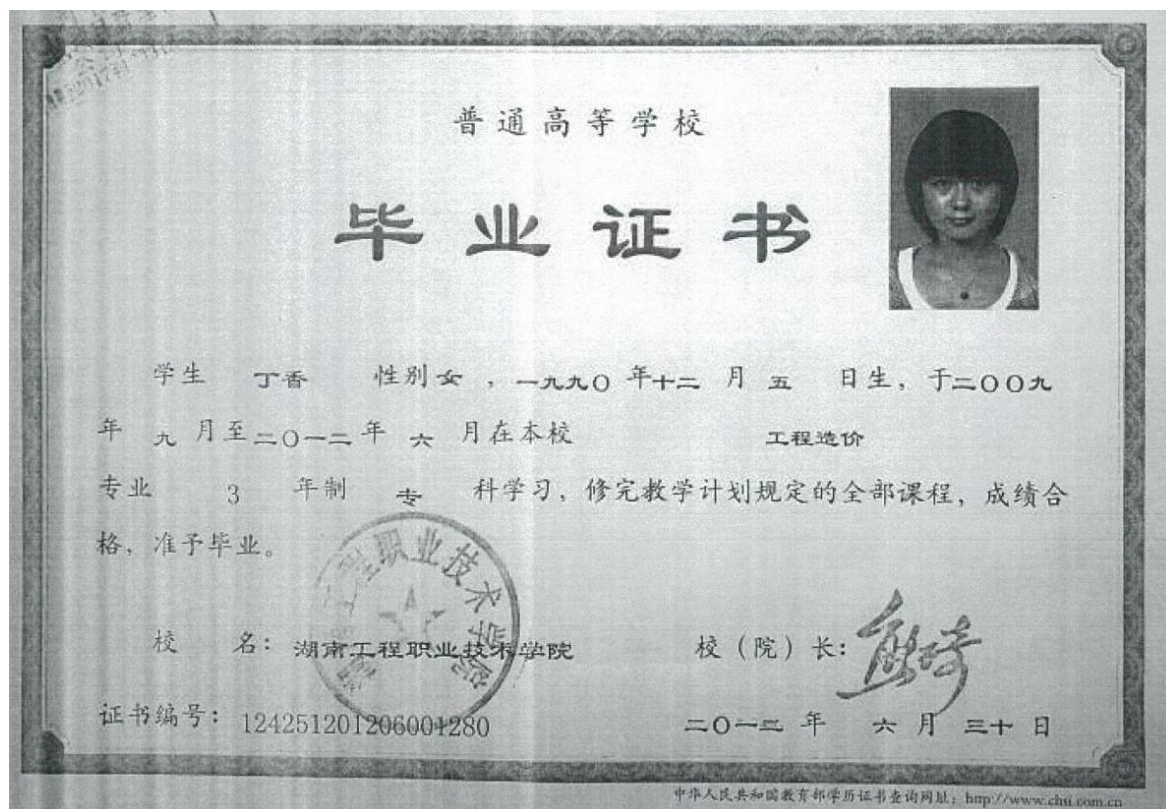 普通高等学校
毕业证书
学生 丁香 性别女，一九九〇年十二月五日生，于二〇〇九
年九月至二〇一二年六月在本校 工程造价
专业 3 年制 专 科学习，修完教学计划规定的全部课程，成绩合
格，准予毕业。
湖南工程职业技术学院
校 名：湖南工程职业技术学院 校（院）长：
证书编号：124251201206001280 二〇一二年 六月 三十日
中华人民共和国教育部学历证书查询网址：http://www.chsi.com.cn